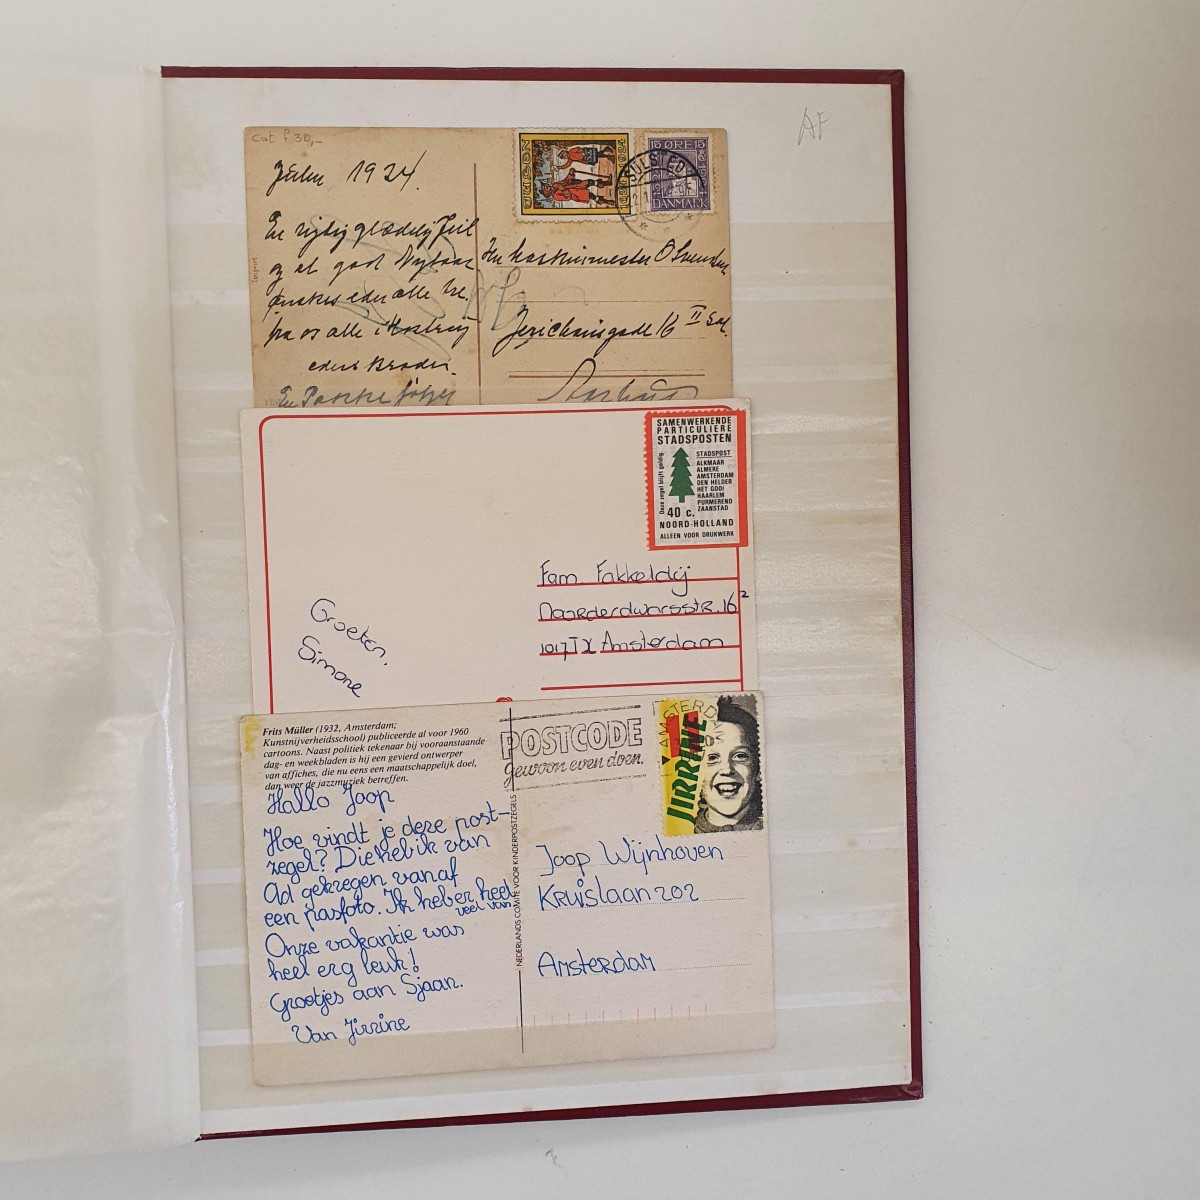 AF
cat f 30,-
Julen 1924.
JULEN
1624 1924
15 ØRE 15
DANMARK
SULSTED
En rigtig glædelig Jul
og et godt Nytaar
ønskes eder alle
fra os alle i
eders Broder.
Import
Hr
Jerichausgade 16 II Sal.
Aarhus
En Pakke følger
SAMENWERKENDE
PARTICULIERE
STADSPOSTEN
Deze zegel blijft geldig.
STADSPOST
ALKMAAR
ALMERE
AMSTERDAM
DEN HELDER
HET GOOI
HAARLEM
PURMEREND
ZAANSTAD
40 c.
NOORD-HOLLAND
ALLEEN VOOR DRUKWERK
Groeten,
Simone
Fam. Fakkeldij
Noorderdwarsstr. 16²
1017TX Amsterdam
Frits Müller (1932, Amsterdam;
Kunstnijverheidsschool) publiceerde al voor 1960
cartoons. Naast politiek tekenaar bij vooraanstaande
dag- en weekbladen is hij een gevierd ontwerper
van affiches, die nu eens een maatschappelijk doel,
dan weer de jazzmuziek betreffen.
Hallo Joop
Hoe vindt je deze post-
zegel? Die heb ik van
Ad gekregen vanaf
een pasfoto. Ik heb er heel
veel van
Onze vakantie was
heel erg leuk!
Groetjes aan Sjaan.
Van Jirrine
NEDERLANDS COMITÉ VOOR KINDERPOSTZEGELS
POSTCODE
gewoon even doen.
AMSTERDAM
JIRRINE
Joop Wijnhoven
Kruislaan 202
Amsterdam